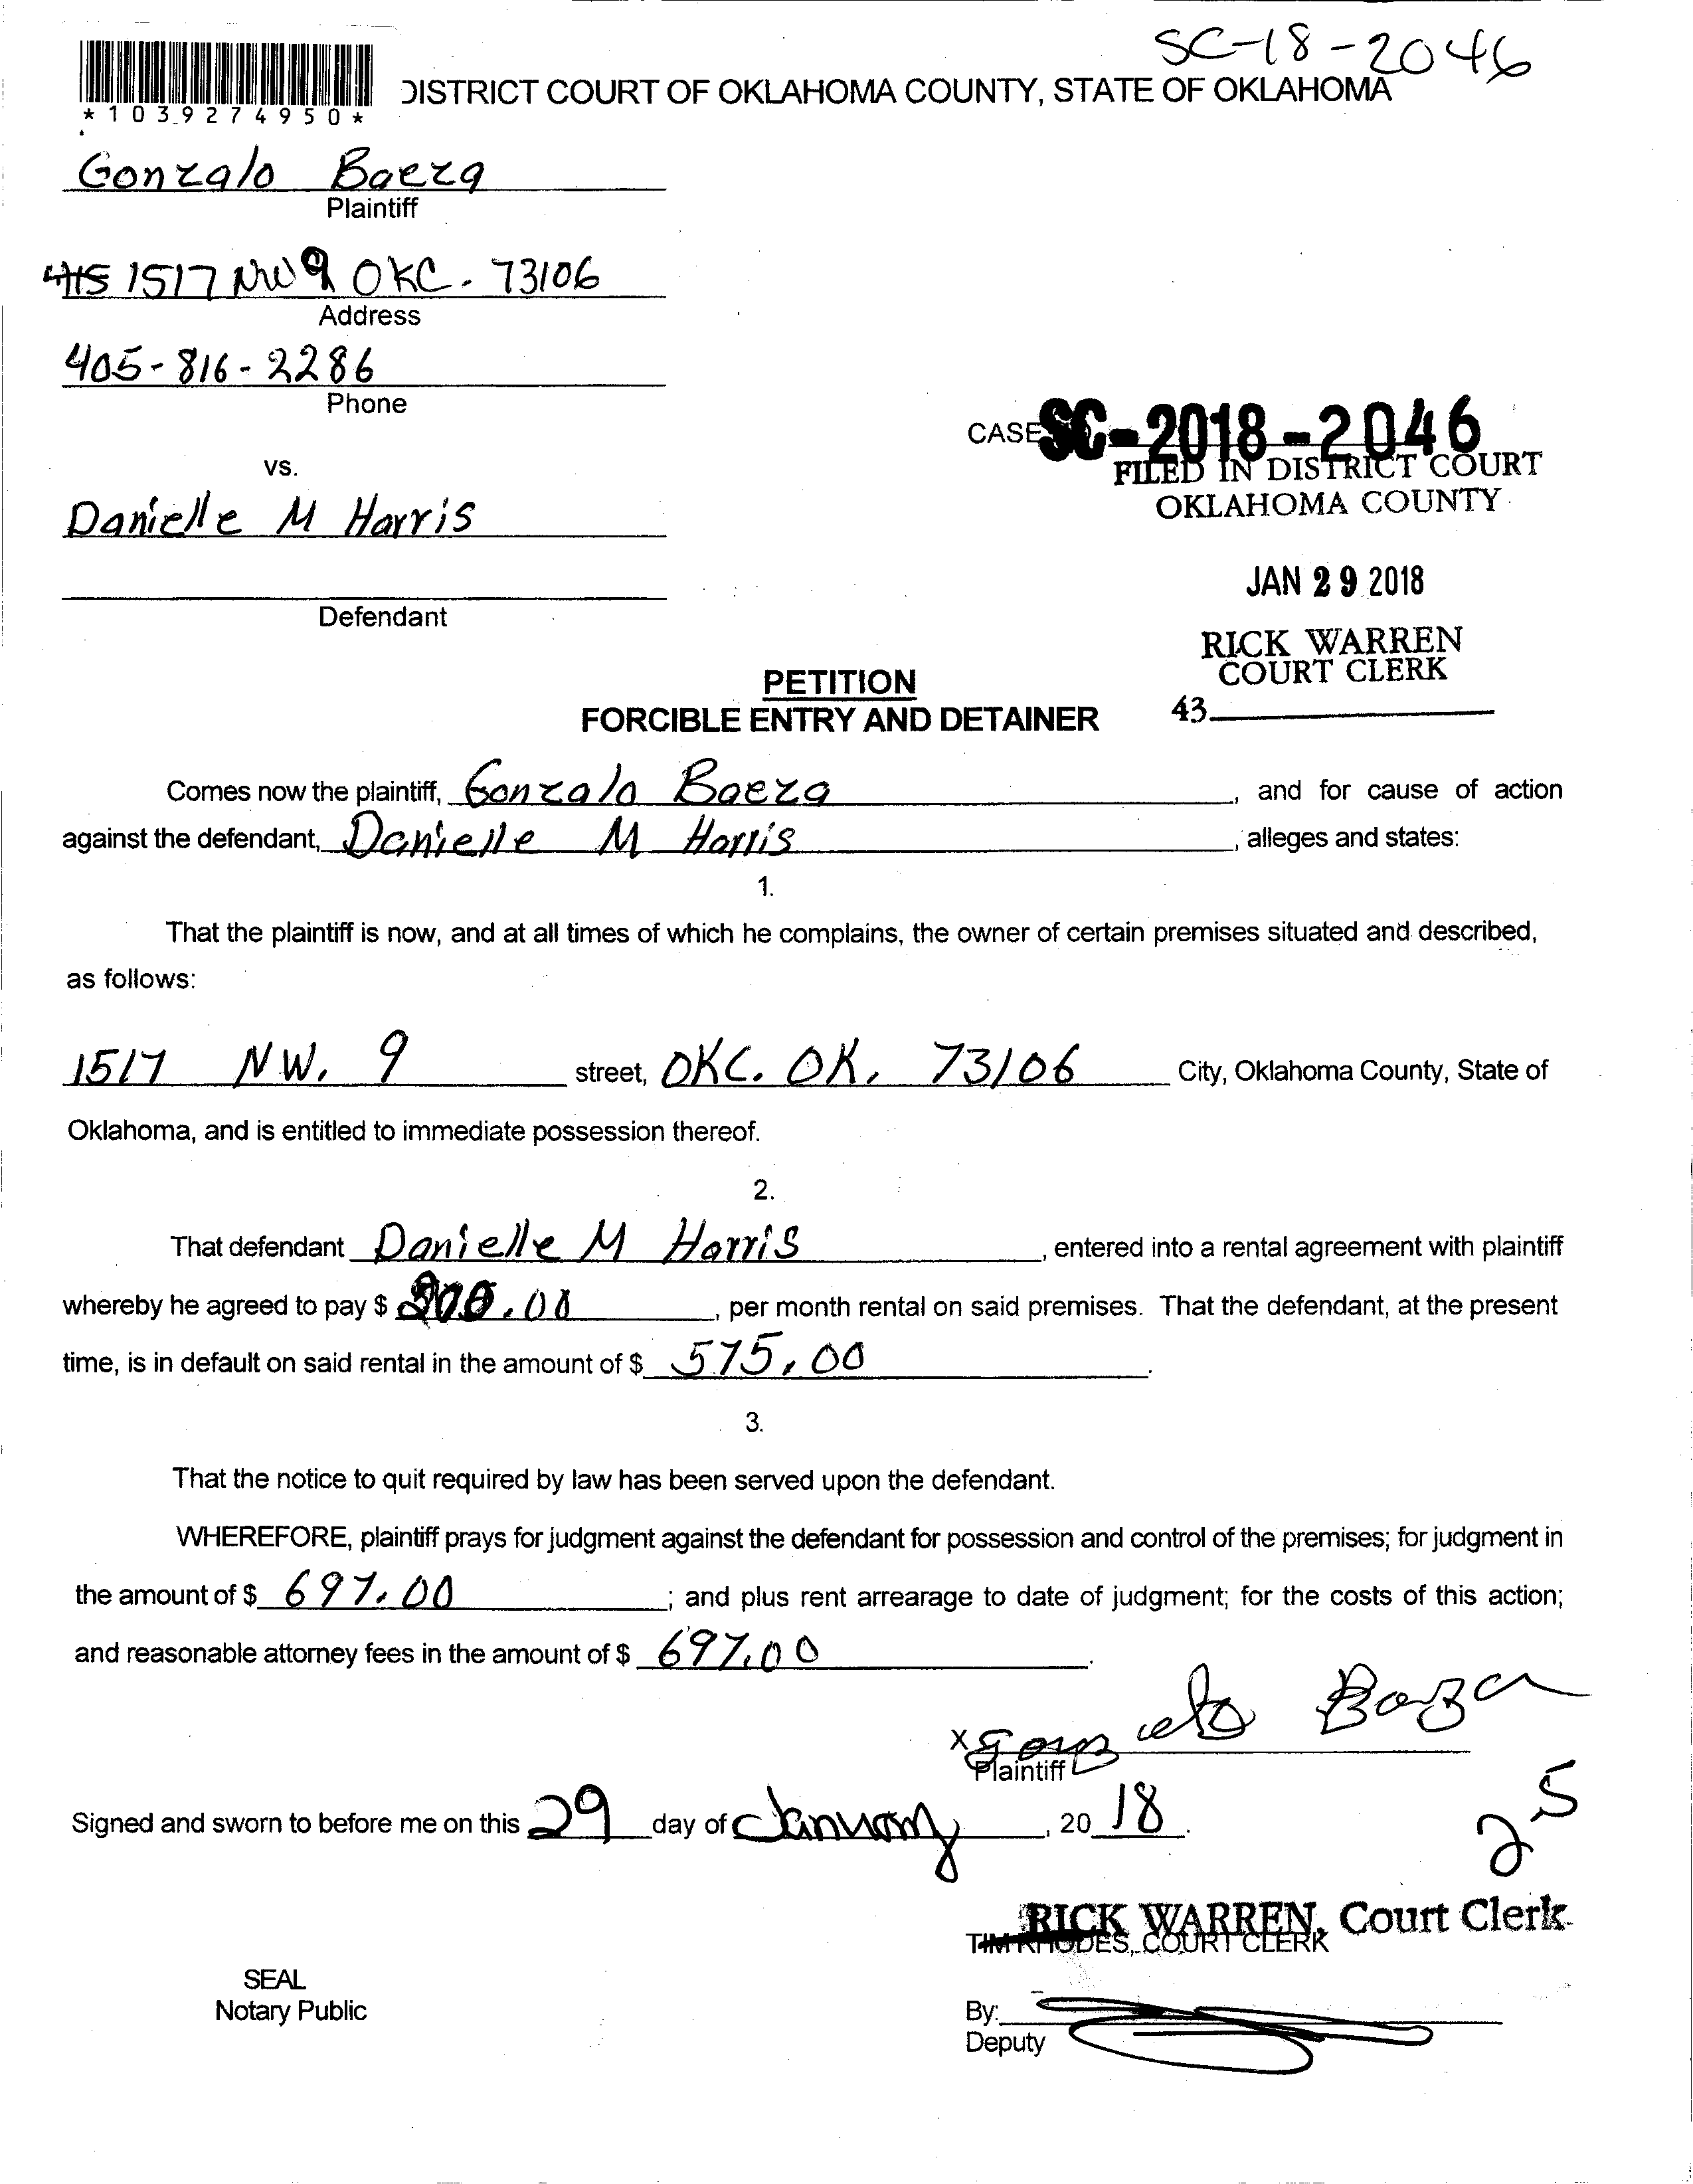 SC-18-2046
*1039274950*
DISTRICT COURT OF OKLAHOMA COUNTY, STATE OF OKLAHOMA
Gonzalo Baeza
Plaintiff
1517 NW 9 OKC. 73106
Address
405-816-2286
Phone
CASE SC-2018-2046
vs.
FILED IN DISTRICT COURT
OKLAHOMA COUNTY
Danielle M Harris
JAN 29 2018
Defendant
RICK WARREN
COURT CLERK
43
PETITION
FORCIBLE ENTRY AND DETAINER
Comes now the plaintiff, Gonzalo Baeza, and for cause of action
against the defendant, Danielle M Harris, alleges and states:
1.
That the plaintiff is now, and at all times of which he complains, the owner of certain premises situated and described,
as follows:
1517 NW. 9 street, OKC. OK, 73106 City, Oklahoma County, State of
Oklahoma, and is entitled to immediate possession thereof.
2.
That defendant Danielle M Harris, entered into a rental agreement with plaintiff
whereby he agreed to pay $ , per month rental on said premises. That the defendant, at the present
time, is in default on said rental in the amount of $ 575,00.
3.
That the notice to quit required by law has been served upon the defendant.
WHEREFORE, plaintiff prays for judgment against the defendant for possession and control of the premises; for judgment in
the amount of $ 697.00; and plus rent arrearage to date of judgment; for the costs of this action;
and reasonable attorney fees in the amount of $ 697.00.
X Gonzalo Baeza
Plaintiff
Signed and sworn to before me on this 29 day of January, 2018.
25
RICK WARREN, Court Clerk
TIM RHODES, COURT CLERK
SEAL
Notary Public
By:
Deputy